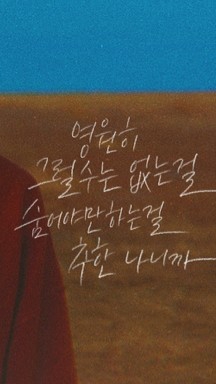 영원히
그럴수는 없는걸
숨어야만하는걸
착한 나니까